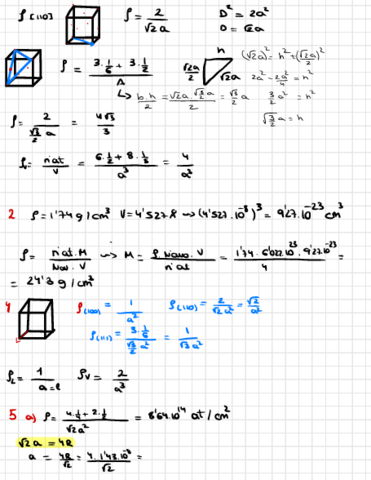 ρ[110]
ρ = 2/(√2a)
D² = 2a²
D = √2a
ρ = (3·1/6 + 3·1/2)/A
√2a/2
h
√2a
(√2a)² = h² + (√2a)²/2
2a² - 2a²/4 = h²
3/2 a² = h²
√(3/2) a = h
b·h/2 = (√2a · √(3/2) a)/2 = √3/2 a
ρ = 2/(√3/2 a) = 4√3/3
ρ = nat/V = (6·1/2 + 8·1/8)/a³ = 4/a³
2 ρ = 1'74 g/cm³ V = 4'527Å → (4'527·10⁻⁸)³ = 9'27·10⁻²³ cm³
ρ = (nat·M)/(Nav·V) → M = (ρ·Navo·V)/nat = (1'74·6'022·10²³·9'27·10⁻²³)/4 =
= 24'3 g/cm³
4
ρ(100) = 1/a²
ρ(110) = 2/(√2a²) = √2/a²
ρ(111) = (3·1/6)/(√3/2 a²) = 1/(√3a²)
ρL = 1/(a=l)
ρV = 2/a³
5 a) ρ = (4·1/4 + 2·1/2)/(√2a²) = 8'64·10¹⁴ at/cm²
√2a = 4R
a = 4R/√2 = (4·1'43·10⁻⁸)/√2 =